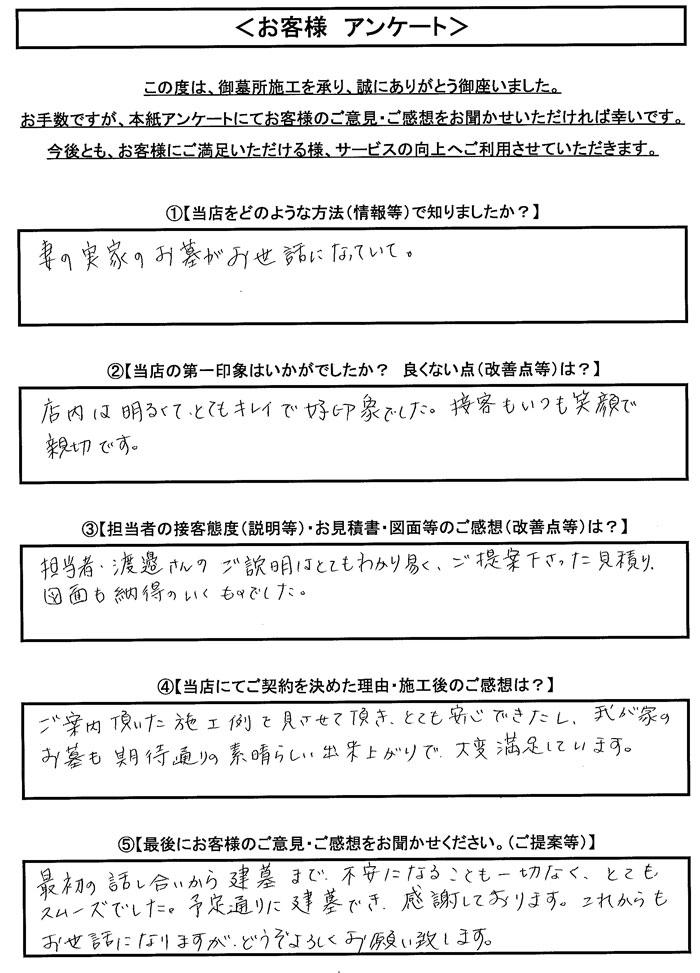 ＜お客様 アンケート＞
この度は、御墓所施工を承り、誠にありがとう御座いました。
お手数ですが、本紙アンケートにてお客様のご意見・ご感想をお聞かせいただければ幸いです。
今後とも、お客様にご満足いただける様、サービスの向上へご利用させていただきます。
①【当店をどのような方法（情報等）で知りましたか？】
妻の実家のお墓がお世話になっていて。
②【当店の第一印象はいかがでしたか？ 良くない点（改善点等）は？】
店内は明るくて、とてもキレイで好印象でした。接客もいつも笑顔で
親切です。
③【担当者の接客態度（説明等）・お見積書・図面等のご感想（改善点等）は？】
担当者・渡邉さんのご説明はとてもわかり易く、ご提案下さった見積り、
図面も納得のいくものでした。
④【当店にてご契約を決めた理由・施工後のご感想は？】
ご案内頂いた施工例を見させて頂き、とても安心できたし、我が家の
お墓も期待通りの素晴らしい出来上がりで、大変満足しています。
⑤【最後にお客様のご意見・ご感想をお聞かせください。（ご提案等）】
最初の話し合いから建墓まで、不安になることも一切なく、とても
スムーズでした。予定通りに建墓でき、感謝しております。これからも
お世話になりますが、どうぞよろしくお願い致します。